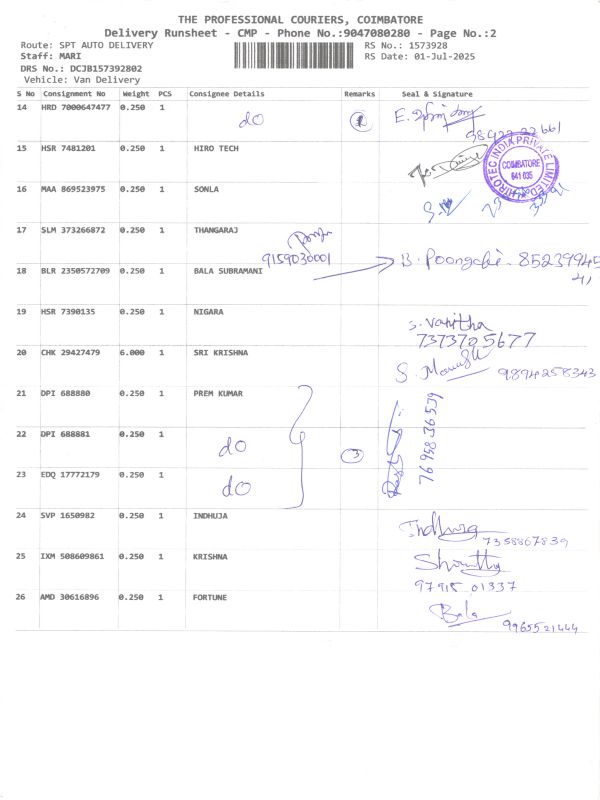 THE PROFESSIONAL COURIERS, COIMBATORE
Delivery Runsheet - CMP - Phone No.:9047080280 - Page No.:2
Route: SPT AUTO DELIVERY RS No.: 1573928
Staff: MARI RS Date: 01-Jul-2025
DRS No.: DCJB157392802
Vehicle: Van Delivery
S No Consignment No Weight PCS Consignee Details Remarks Seal & Signature
14 HRD 7000647477 0.250 1 do E.
15 HSR 7481201 0.250 1 HIRO TECH
HIROTEC INDIA PRIVATE LIMITED
COIMBATORE
641 035
16 MAA 869523975 0.250 1 SONLA
17 SLM 373266872 0.250 1 THANGARAJ
9159030001
18 BLR 2350572709 0.250 1 BALA SUBRAMANI
19 HSR 7390135 0.250 1 NIGARA S. Vanitha
73737 5677
20 CHK 29427479 6.000 1 SRI KRISHNA S.
9894258343
21 DPI 688880 0.250 1 PREM KUMAR
22 DPI 688881 0.250 1 do 3
76958 36539
23 EDQ 17772179 0.250 1 do
24 SVP 1650982 0.250 1 INDHUJA
7358867839
25 IXM 508609861 0.250 1 KRISHNA
97915 01337
26 AMD 30616896 0.250 1 FORTUNE Bala
9965521444